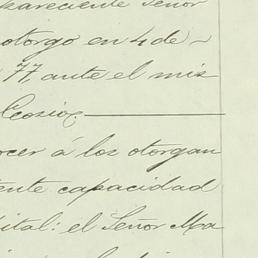 pareciente Señor
otorgo en 4 de
77 ante el mis
Ecosio,
rcer á los otorgan
ente capacidad
pital: el Señor Ma